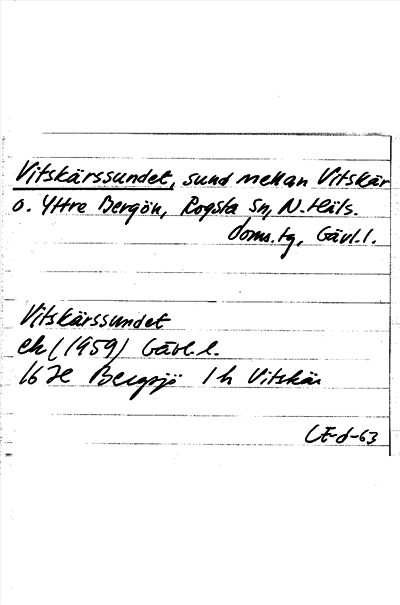 Vitskärssundet, sund mellan Vitskär
o. Yttre Bergön, Rogsta Sn, N. Häls.
doms.tg, Gävl. l.
Vitskärssundet
ek (1959) Gävl. l.
16 H Bergsjö 1 h Vitskär
CE-d-63